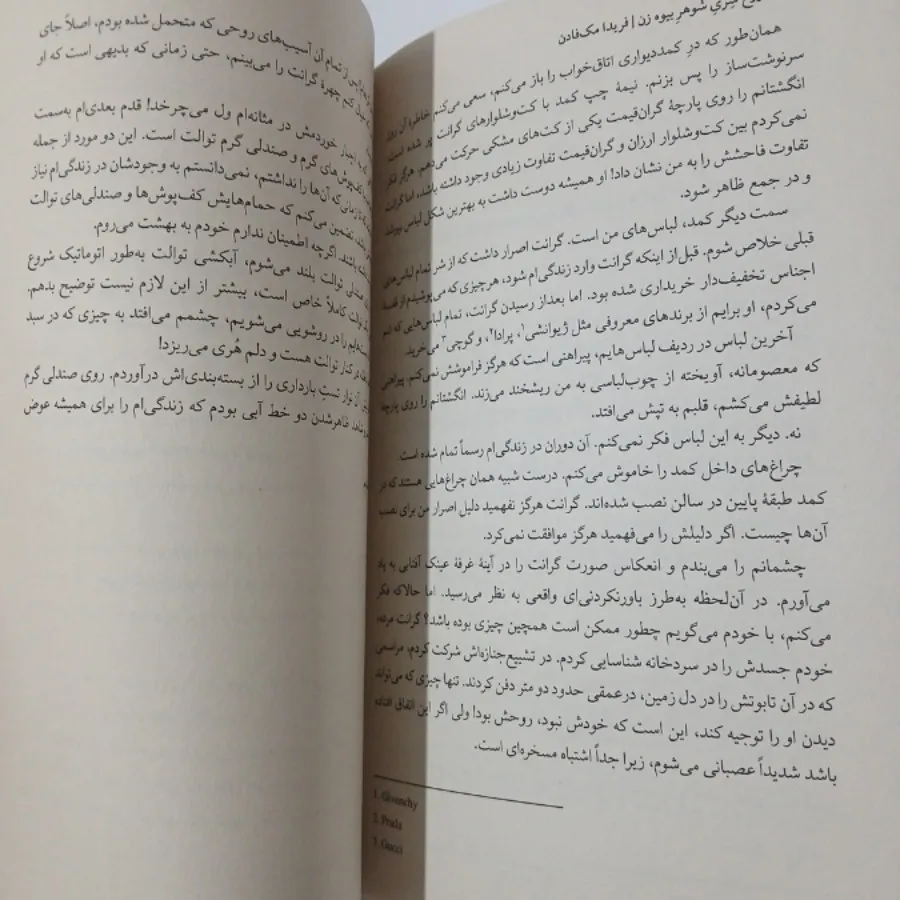 شوهرِ بیوه زن | فریدا مک‌فادن
همان‌طور که درِ کمددیواری اتاق‌خواب را باز می‌کنم، سعی می‌کنم خاطرهٔ آن روز
سرنوشت‌ساز را پس بزنم. نیمهٔ چپ کمد با کت‌وشلوارهای گرانت پر شده است.
انگشتانم را روی پارچهٔ گران‌قیمت یکی از کت‌های مشکی حرکت می‌دهم. هرگز فکر
نمی‌کردم بین کت‌وشلوار ارزان و گران‌قیمت تفاوت زیادی وجود داشته باشد، اما گرانت
تفاوت فاحشش را به من نشان داد! او همیشه دوست داشت به بهترین شکل لباس بپوشد
و در جمع ظاهر شود.
سمت دیگر کمد، لباس‌های من است. گرانت اصرار داشت که از شر تمام لباس‌های
قبلی خلاص شوم. قبل‌از اینکه گرانت وارد زندگی‌ام شود، هرچیزی که می‌پوشیدم از قفسهٔ
اجناس تخفیف‌دار خریداری شده بود. اما بعداز رسیدن گرانت، تمام لباس‌هایی که
می‌کردم، او برایم از برندهای معروفی مثل ژیوانشی۱، پرادا۲، و گوچی۳ می‌خرید.
آخرین لباس در ردیف لباس‌هایم، پیراهنی است که هرگز فراموشش نمی‌کنم. پیراهنی
که معصومانه، آویخته از چوب‌لباسی به من ریشخند می‌زند. انگشتانم را روی پارچهٔ
لطیفش می‌کشم، قلبم به تپش می‌افتد.
نه. دیگر به این لباس فکر نمی‌کنم. آن دوران در زندگی‌ام رسماً تمام شده است.
چراغ‌های داخل کمد را خاموش می‌کنم. درست شبیه همان چراغ‌هایی هستند که در
کمد طبقهٔ پایین در سالن نصب شده‌اند. گرانت هرگز نفهمید دلیل اصرار من برای نصب
آن‌ها چیست. اگر دلیلش را می‌فهمید هرگز موافقت نمی‌کرد.
چشمانم را می‌بندم و انعکاس صورت گرانت را در آینهٔ غرفهٔ عینک آفتابی به یاد
می‌آورم. در آن‌لحظه به‌طرز باورنکردنی‌ای واقعی به نظر می‌رسید. اما حالاکه فکر
می‌کنم، با خودم می‌گویم چطور ممکن است همچین چیزی بوده باشد؟ گرانت مرده،
خودم جسدش را در سردخانه شناسایی کردم. در تشییع‌جنازه‌اش شرکت کردم، مراسمی
که در آن تابوتش را در دل زمین، درعمقی حدود دو متر دفن کردند. تنها چیزی که می‌تواند
دیدن او را توجیه کند، این است که خودش نبود، روحش بود! ولی اگر این اتفاق افتاده
باشد شدیداً عصبانی می‌شوم، زیرا جداً اشتباه مسخره‌ای است.
1. Givenchy
2. Prada
3. Gucci
از تمام آن آسیب‌های روحی که متحمل شده بودم، اصلاً جای
کم چهرهٔ گرانت را می‌بینم، حتی زمانی که بدیهی است که او
اجبار خوردمش در مثانه‌ام ول می‌چرخد! قدم بعدی‌ام به‌سمت
کف‌پوش‌های گرم و صندلی گرم توالت است. این دو مورد از جمله
زمانی‌که آن‌ها را نداشتم، نمی‌دانستم به وجودشان در زندگی‌ام نیاز
تضمین می‌کنم که حمام‌هایش کف‌پوش‌ها و صندلی‌های توالت
باشند. اگرچه اطمینان ندارم خودم به بهشت می‌روم.
صندلی توالت بلند می‌شوم، آبکشی توالت به‌طور اتوماتیک شروع
توالت کاملاً خاص است، بیشتر از این لازم نیست توضیح بدهم.
را در روشویی می‌شویم، چشمم می‌افتد به چیزی که در سبد
در کنار توالت هست و دلم هُری می‌ریزد!
آن نوار تست بارداری را از بسته‌بندی‌اش درآوردم. روی صندلی گرم
ظاهرشدن دو خط آبی بودم که زندگی‌ام را برای همیشه عوض